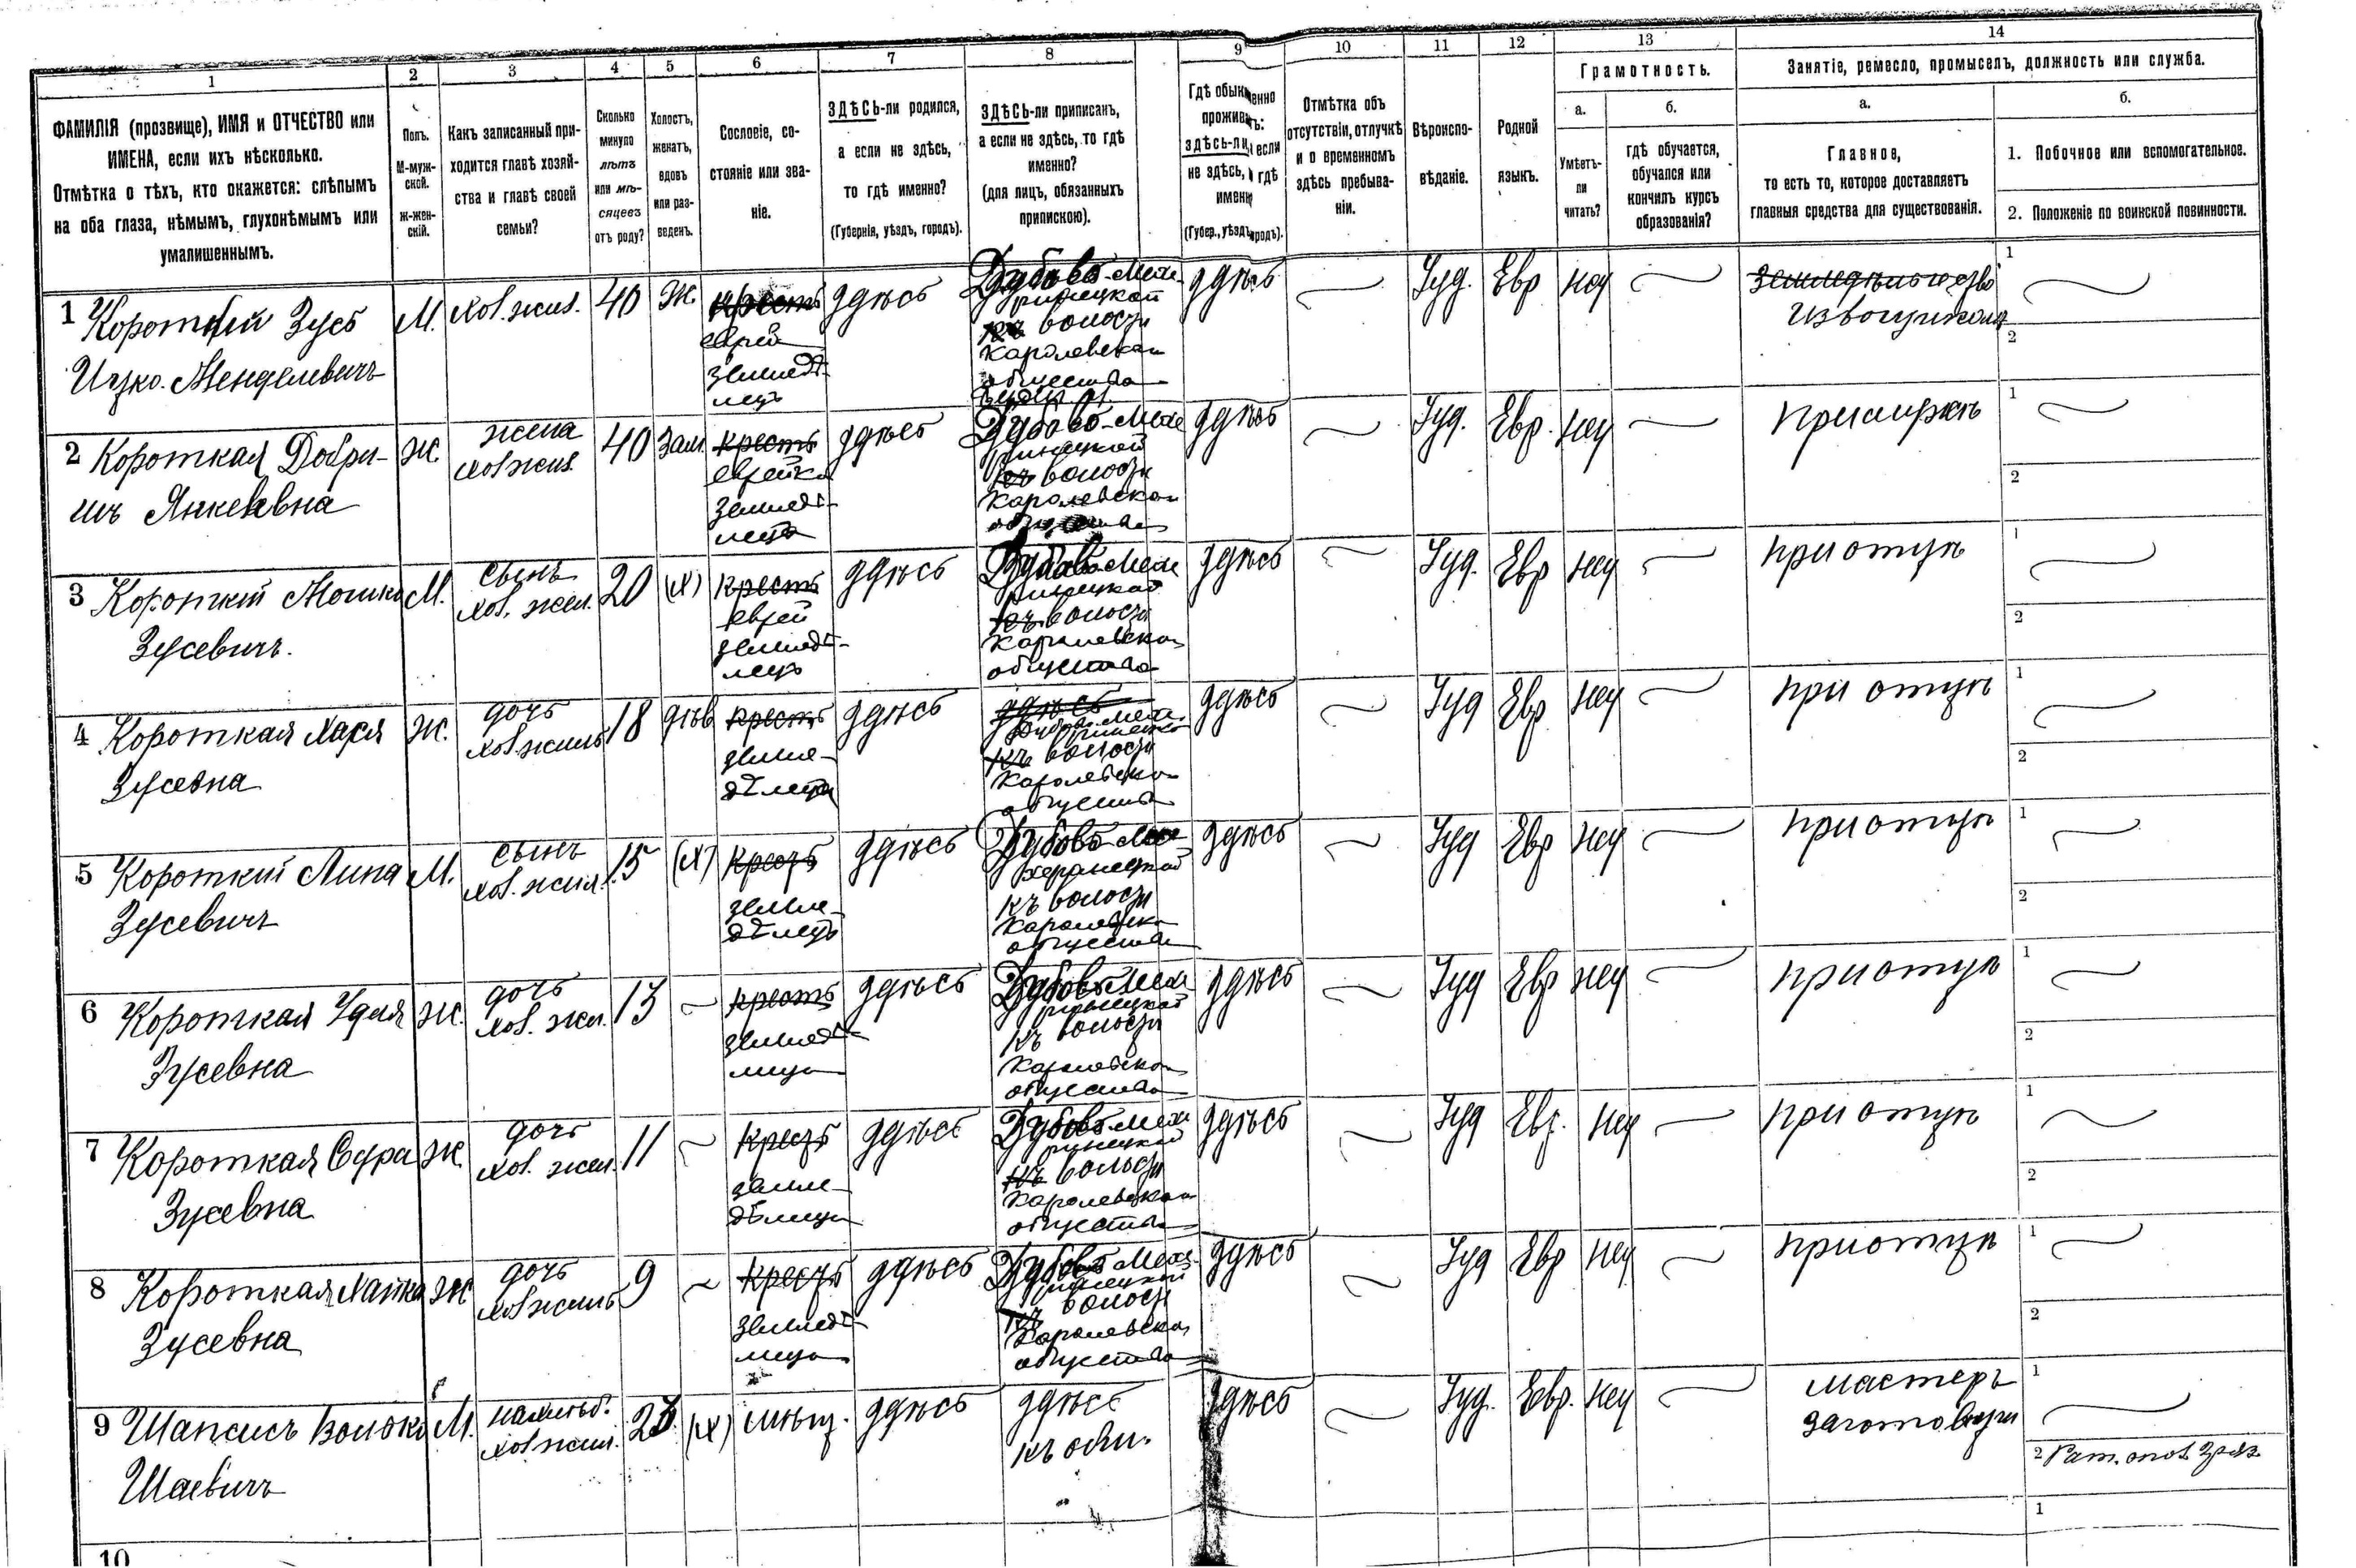 1 2 3 4 5 6 7 8 9 10 11 12 13 14
ФАМИЛІЯ (прозвище), ИМЯ и ОТЧЕСТВО или
ИМЕНА, если ихъ нѣсколько.
Отмѣтка о тѣхъ, кто окажется: слѣпымъ
на оба глаза, нѣмымъ, глухонѣмымъ или
умалишеннымъ.
Полъ.
М-муж-
ской.
ж-жен-
скій.
Какъ записанный при-
ходится главѣ хозяй-
ства и главѣ своей
семьи?
Сколько
минуло
лѣтъ
или мѣ-
сяцевъ
отъ роду?
Холостъ,
женатъ,
вдовъ
или раз-
веденъ.
Сословіе, со-
стояніе или зва-
ніе.
ЗДѢСЬ-ли родился,
а если не здѣсь,
то гдѣ именно?
(Губернія, уѣздъ, городъ).
ЗДѢСЬ-ли приписанъ,
а если не здѣсь, то гдѣ
именно?
(для лицъ, обязанныхъ
припискою).
Гдѣ обыкновенно
проживаетъ:
здѣсь-ли, если
не здѣсь, гдѣ
именно
(Губер., уѣздъ, городъ).
Отмѣтка объ
отсутствіи, отлучкѣ
и о временномъ
здѣсь пребыва-
ніи.
Вѣроиспо-
вѣданіе.
Родной
языкъ.
Грамотность.
а.
Умѣетъ-
ли
читать?
б.
гдѣ обучается,
обучался или
кончилъ курсъ
образованія?
Занятіе, ремесло, промыселъ, должность или служба.
а.
Главное,
то есть то, которое доставляетъ
главныя средства для существованія.
б.
1. Побочное или вспомогательное.
2. Положеніе по воинской повинности.
1 Короткий Зусь
Ицко-Менделевичъ
М.
хоз. жил.
40
Ж.
крест
еврей
землед-
лецъ
здѣсь
Дубово-Меже
ринецкой
къ волости
Каролевскаго
общества
здѣсь
Іуд.
Евр
нѣт
Земледѣльчество
Извощикомъ
1
2
2 Короткая Добри-
шъ Янкелевна
Ж.
жена
хоз. жил.
40
зам.
крест
еврейка
землед-
лецъ
здѣсь
Дубово-Меже
ринецкой
къ волости
Каролевскаго
общества
здѣсь
Іуд.
Евр.
нѣт
при мужѣ
1
2
3 Короткий Мошко
Зусевичъ.
М.
сынъ
хоз. жил.
20
(х)
крест
еврей
землед-
лецъ
здѣсь
Дубово-Меже
ринецкой
къ волости
Каролевскаго
общества
здѣсь
Іуд.
Евр
нѣт
при отцѣ
1
2
4 Короткая Хася
Зусевна
Ж.
дочь
хоз. жил.
18
дѣв
крест
земле-
дѣлица
здѣсь
здѣсь
Дубово-Меже
ринецкой
къ волости
Каролевскаго
общества
здѣсь
Іуд
Евр
нѣт
при отцѣ
1
2
5 Короткий Липа
Зусевичъ
М.
сынъ
хоз. жил.
15
(х)
крест
земле-
дѣлецъ
здѣсь
Дубово-Меже
къ волости
Каролевскаго
общества
здѣсь
Іуд
Евр
нѣт
при отцѣ
1
2
6 Короткая Удля
Зусевна
Ж.
дочь
хоз. жил.
13
крест
землед-
лица
здѣсь
Дубово-Меже
ринецкой
къ волости
Каролевскаго
общества
здѣсь
Іуд
Евр
нѣт
при отцѣ
1
2
7 Короткая Сура
Зусевна
Ж.
дочь
хоз. жил.
11
крест
земле-
дѣлица
здѣсь
Дубово-Меже
ринецкой
къ волости
Каролевскаго
общества
здѣсь
Іуд
Евр.
нѣт
при отцѣ
1
2
8 Короткая Хайка
Зусевна
Ж
дочь
хоз. жил.
9
крест
землед-
лица
здѣсь
Дубово-Меже
ринецкой
къ волости
Каролевскаго
общества
здѣсь
Іуд
Евр
нѣт
при отцѣ
1
2
9 Шапсисъ Волько
Шаевичъ
М.
хоз. жил.
(х)
мѣщ.
здѣсь
здѣсь
къ общ.
здѣсь
Іуд.
Евр.
нѣт
мастеръ
1
2
1
10